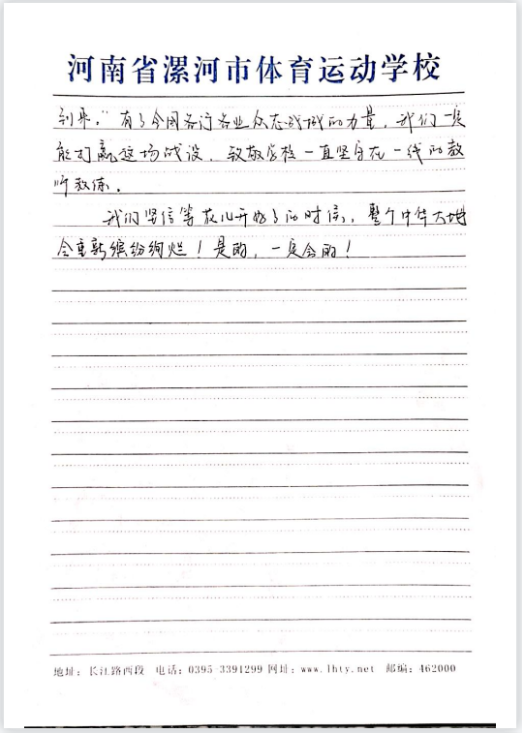 河南省漯河市体育运动学校
到来。"有了全国各行各业众志成城的力量，我们一定
能打赢这场战役，致敬学校一直坚守在一线的教
师教练。
我们坚信等花儿开好了的时候，整个中华大地
会重新缤纷绚烂！是的，一定会的！
地址：长江路西段 电话：0395-3391299 网址：www.lhty.net 邮编：462000